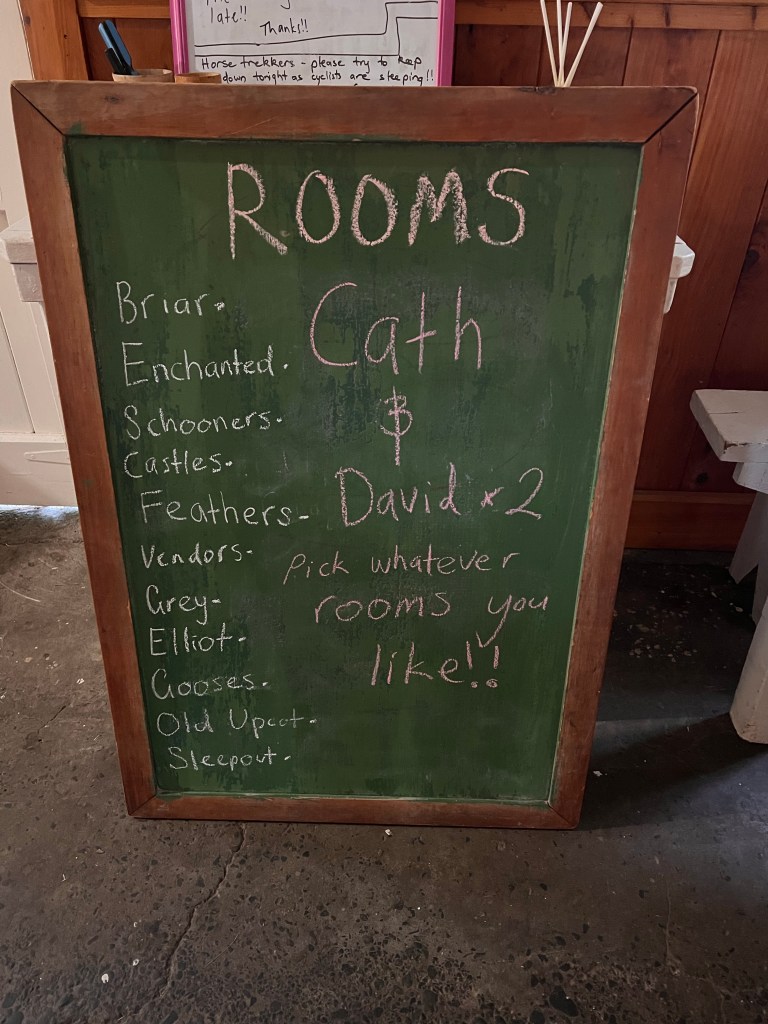 late!!
Thanks!!
Horse trekkers - please try to keep
down tonight as cyclists are sleeping!!
ROOMS
Briar-
Enchanted.
Schooners-
Castles-
Feathers-
Vendors-
Grey-
Elliot-
Gooses-
Old Upcot-
Sleepout-
Cath
&
David x2
Pick whatever
rooms you
like!!